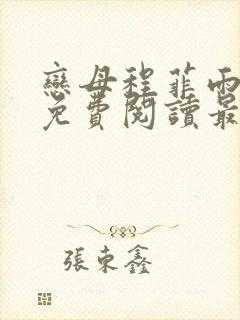 戀母程菲雨
免費閱讀最
張東鑫